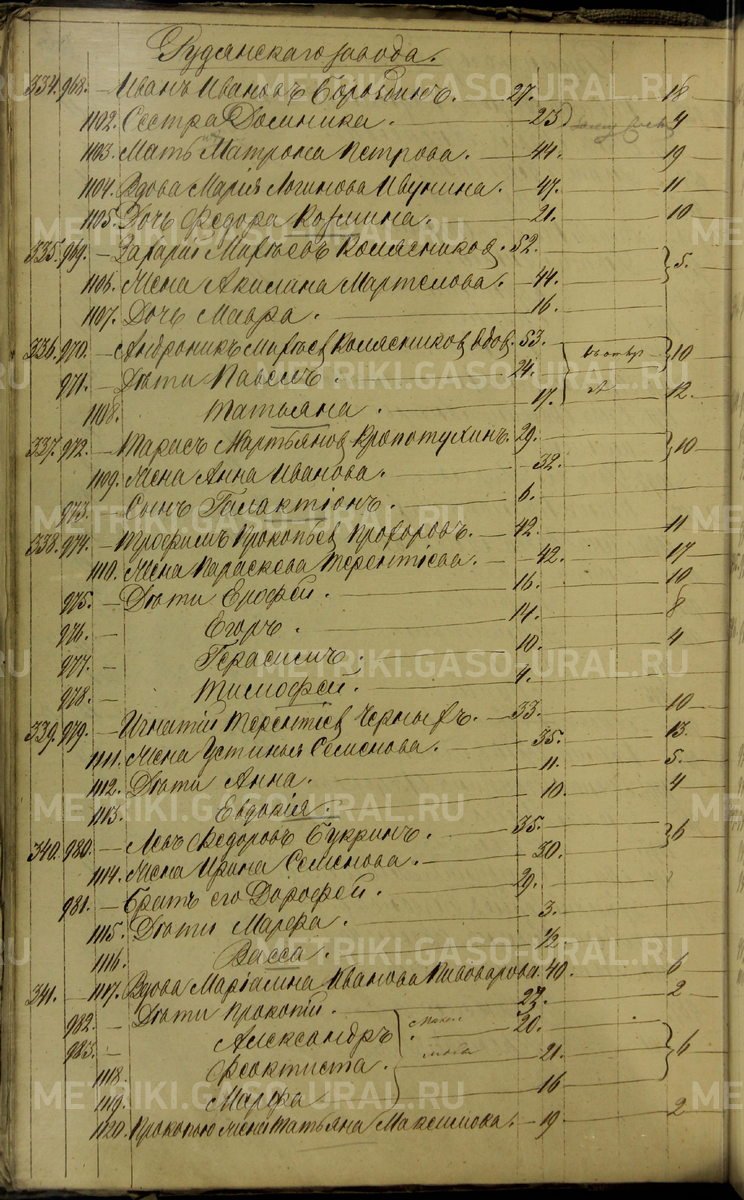 Рудянскаго завода.
334. 968. Иванъ Ивановъ 27. 18
1102. Сестра Домника. 23 4
1103. Мать Матрона Петрова. 44. 19
1104. Вдова Марія Логинова 47. 11
1105. Дочь Федора 21. 10
335. 969. Колясников. 52. 5.
1106. Жена Акилина 44.
1107. Дочь Мавра. 16.
336. 970. Андроникъ Колясников вдов. 53. 10
971. Дѣти 24. 12
1108. Татьяна. 17.
337. 972. Тарасъ Мартьянов Кропотухинъ. 29. 10
1109. Жена Анна Иванова. 32.
973. Сынъ Галактіонъ. 6.
338. 974. Трофимъ Прокопьев Прохоровъ. 42. 11
1110. Жена Параскева Терентіева. 42. 17
975. Дѣти Ерофей. 16. 10
976. Егоръ. 14. 8
977. Герасимъ. 10. 4
978. Тимофей. 4.
339. 979. Игнатій Терентіев Черныхъ. 33. 10
1111. Жена Устинья Семенова. 35. 13.
1112. Дѣти Анна. 11. 5.
1113. Евдокія. 10. 4
340. 980. Левъ Федоровъ Букринъ. 35. 6
1114. Жена Ирина Семенова. 30.
981. Братъ его Дорофей. 29.
1115. Дѣти Марфа. 3.
1116. Васса. 1/2
341. 1117. Вдова Маріамна Иванова Пивоварова. 40. 6
982. Дѣти Прокопій. 22. 2
983. Александръ 20. 6
1118. Феоктиста. 21.
1119. Марфа 16
1120. Прокопью жена Татьяна Максимова. 19 2
METRIKI.GASO-URAL.RU